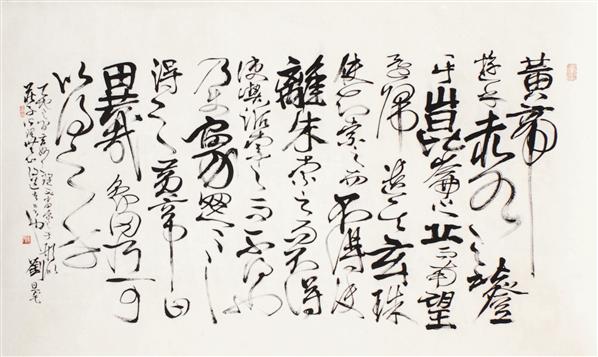 黃帝
遊乎赤水之北登
乎崑崙之丘而南望
還歸遺其玄珠
使知索之而不得使
離朱索之而不得
使喫詬索之而不得也
乃使象罔象罔
得之黃帝曰
異哉象罔乃可
以得之乎
丁亥
莊子
劉